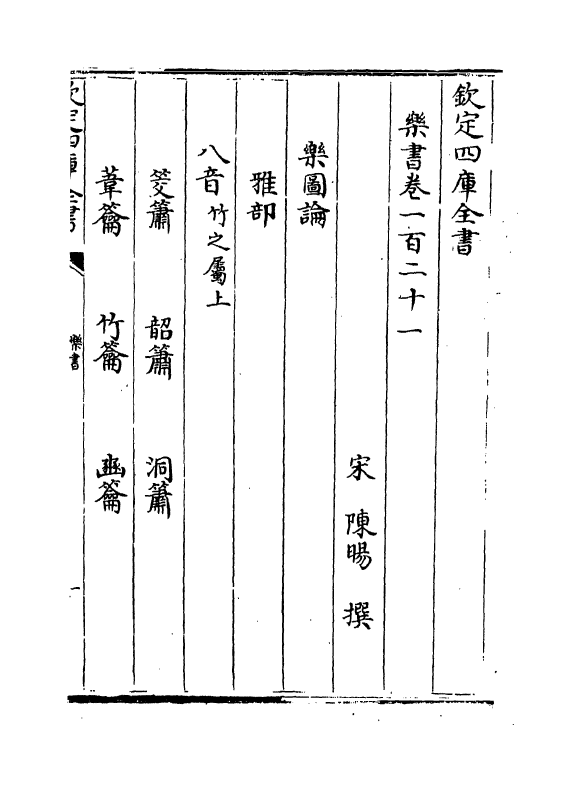 欽定四庫全書
樂書卷一百二十一
宋 陳暘 撰
樂圖論
雅部
八音 竹之屬上
筊簫 韶簫 洞簫
葦籥 竹籥 豳籥
欽定四庫全書 樂書 一